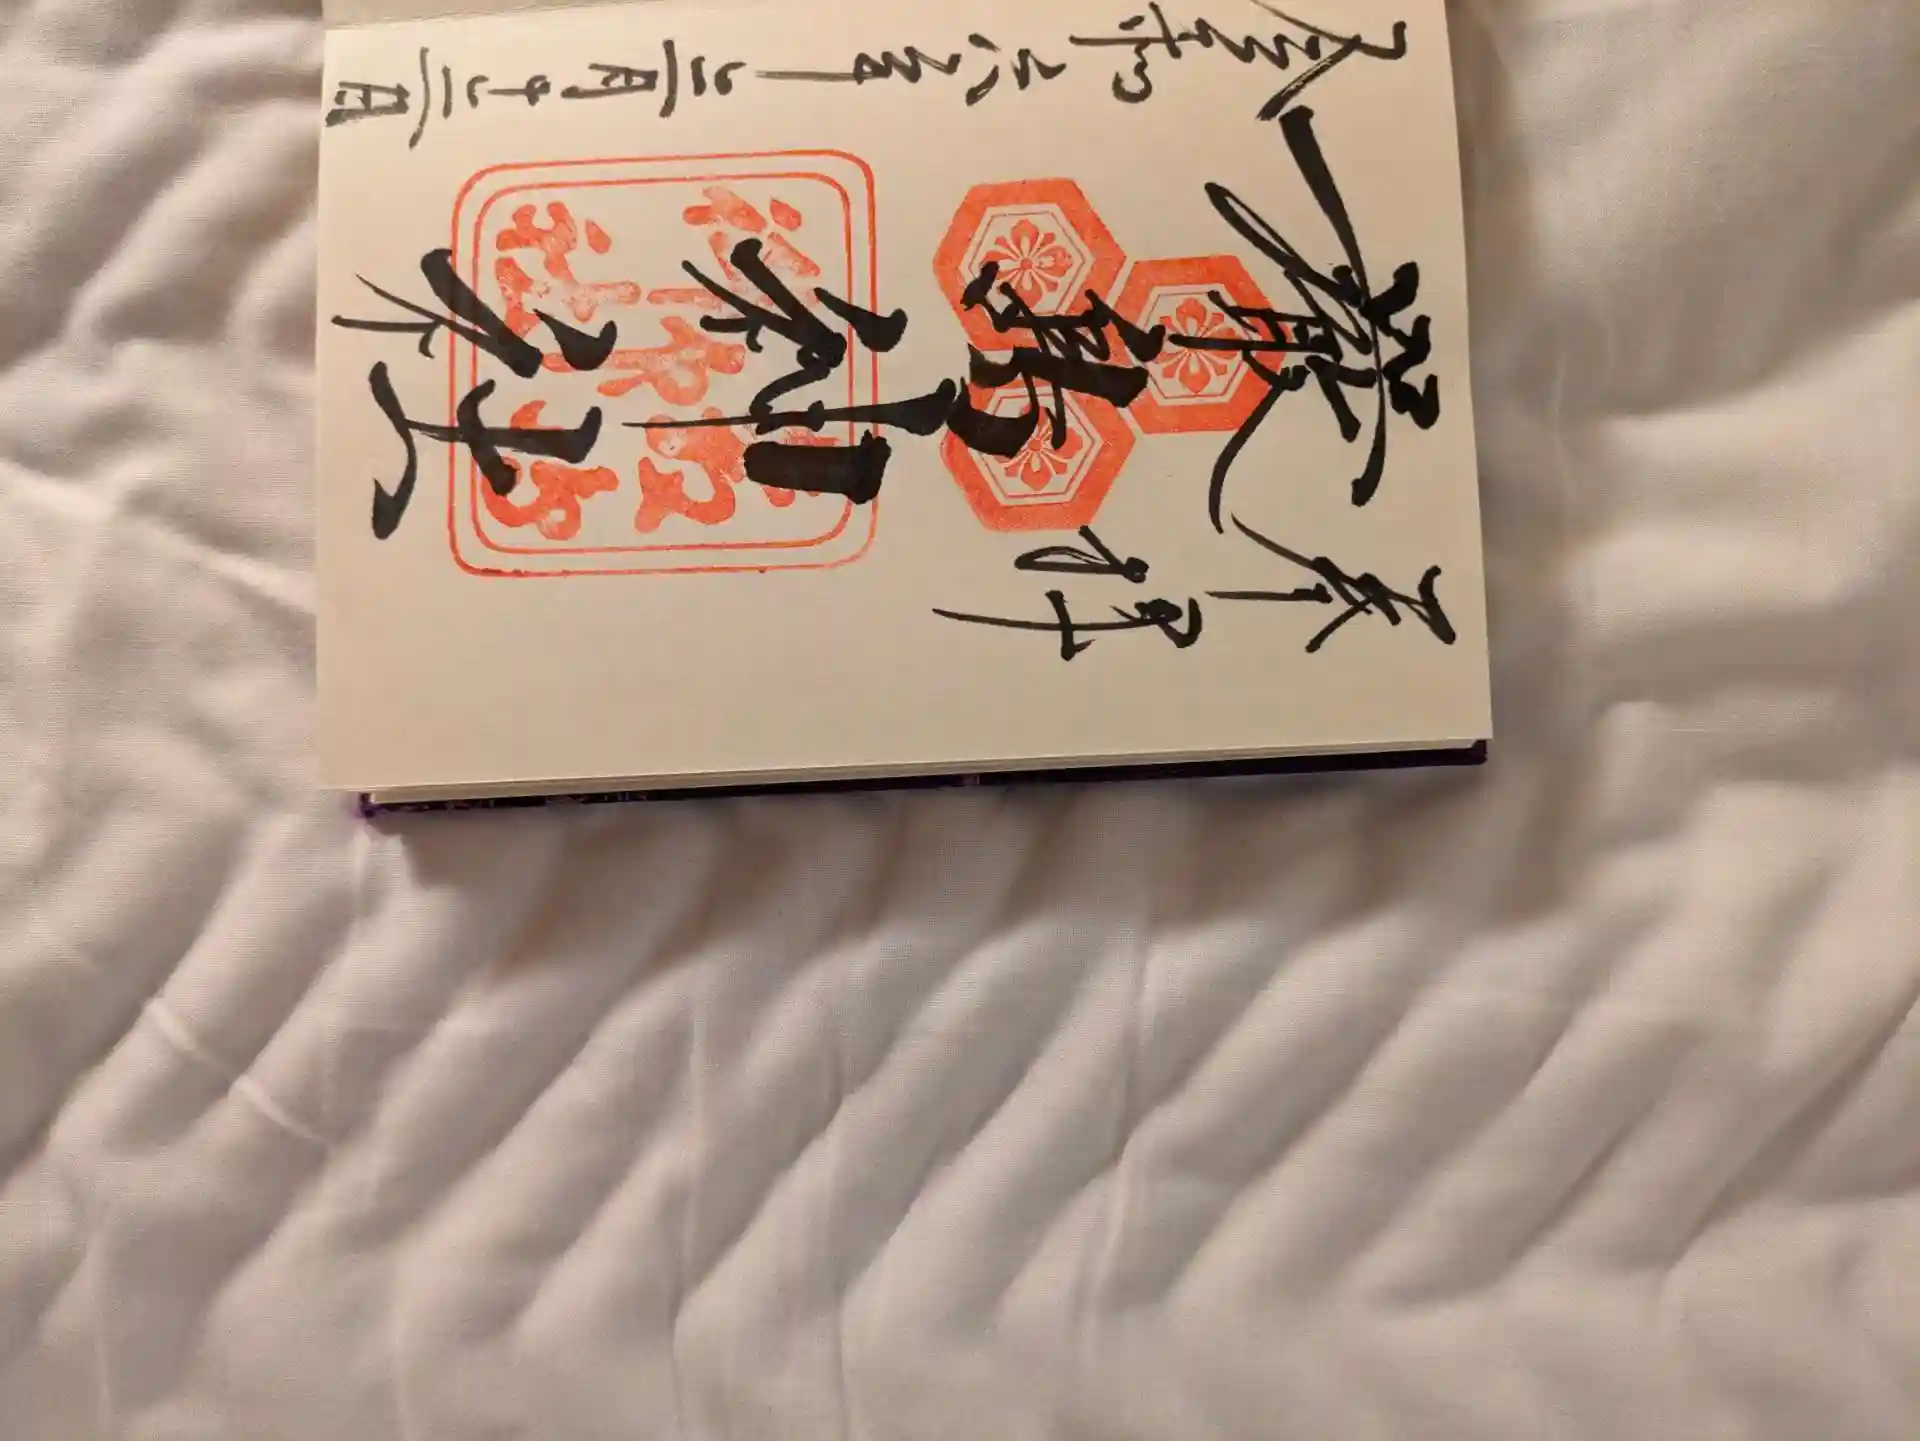 奉拝
嚴島神社
令和六年三月十三日